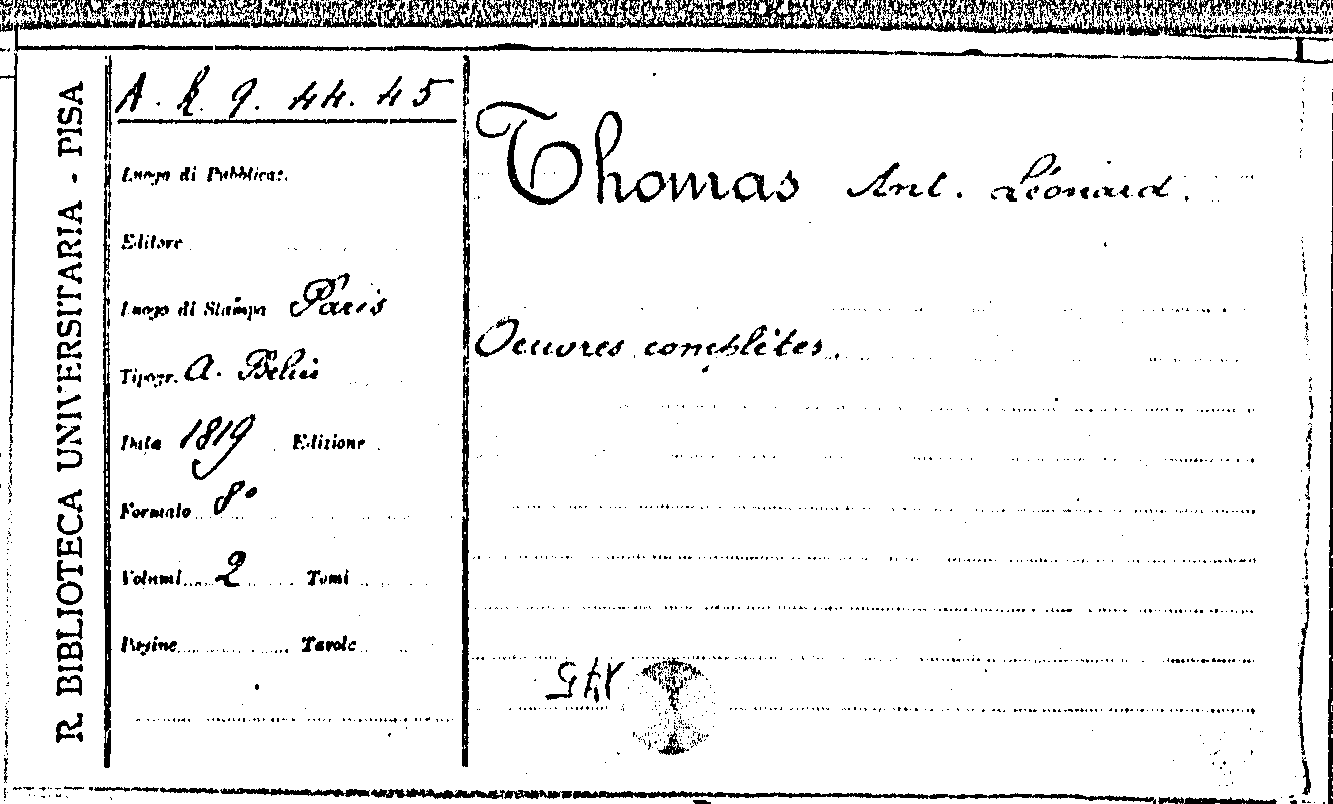 R. BIBLIOTECA UNIVERSITARIA - PISA
A. k. 9. 44. 45
Luogo di Pubblicaz.
Editore
Luogo di Stampa Paris
Tipogr. A. Belin
Data 1819 Edizione
Formato 8°
Volumi 2 Tomi
Pagine Tavole
Thomas Ant. Léonard.
Oeuvres complètes.